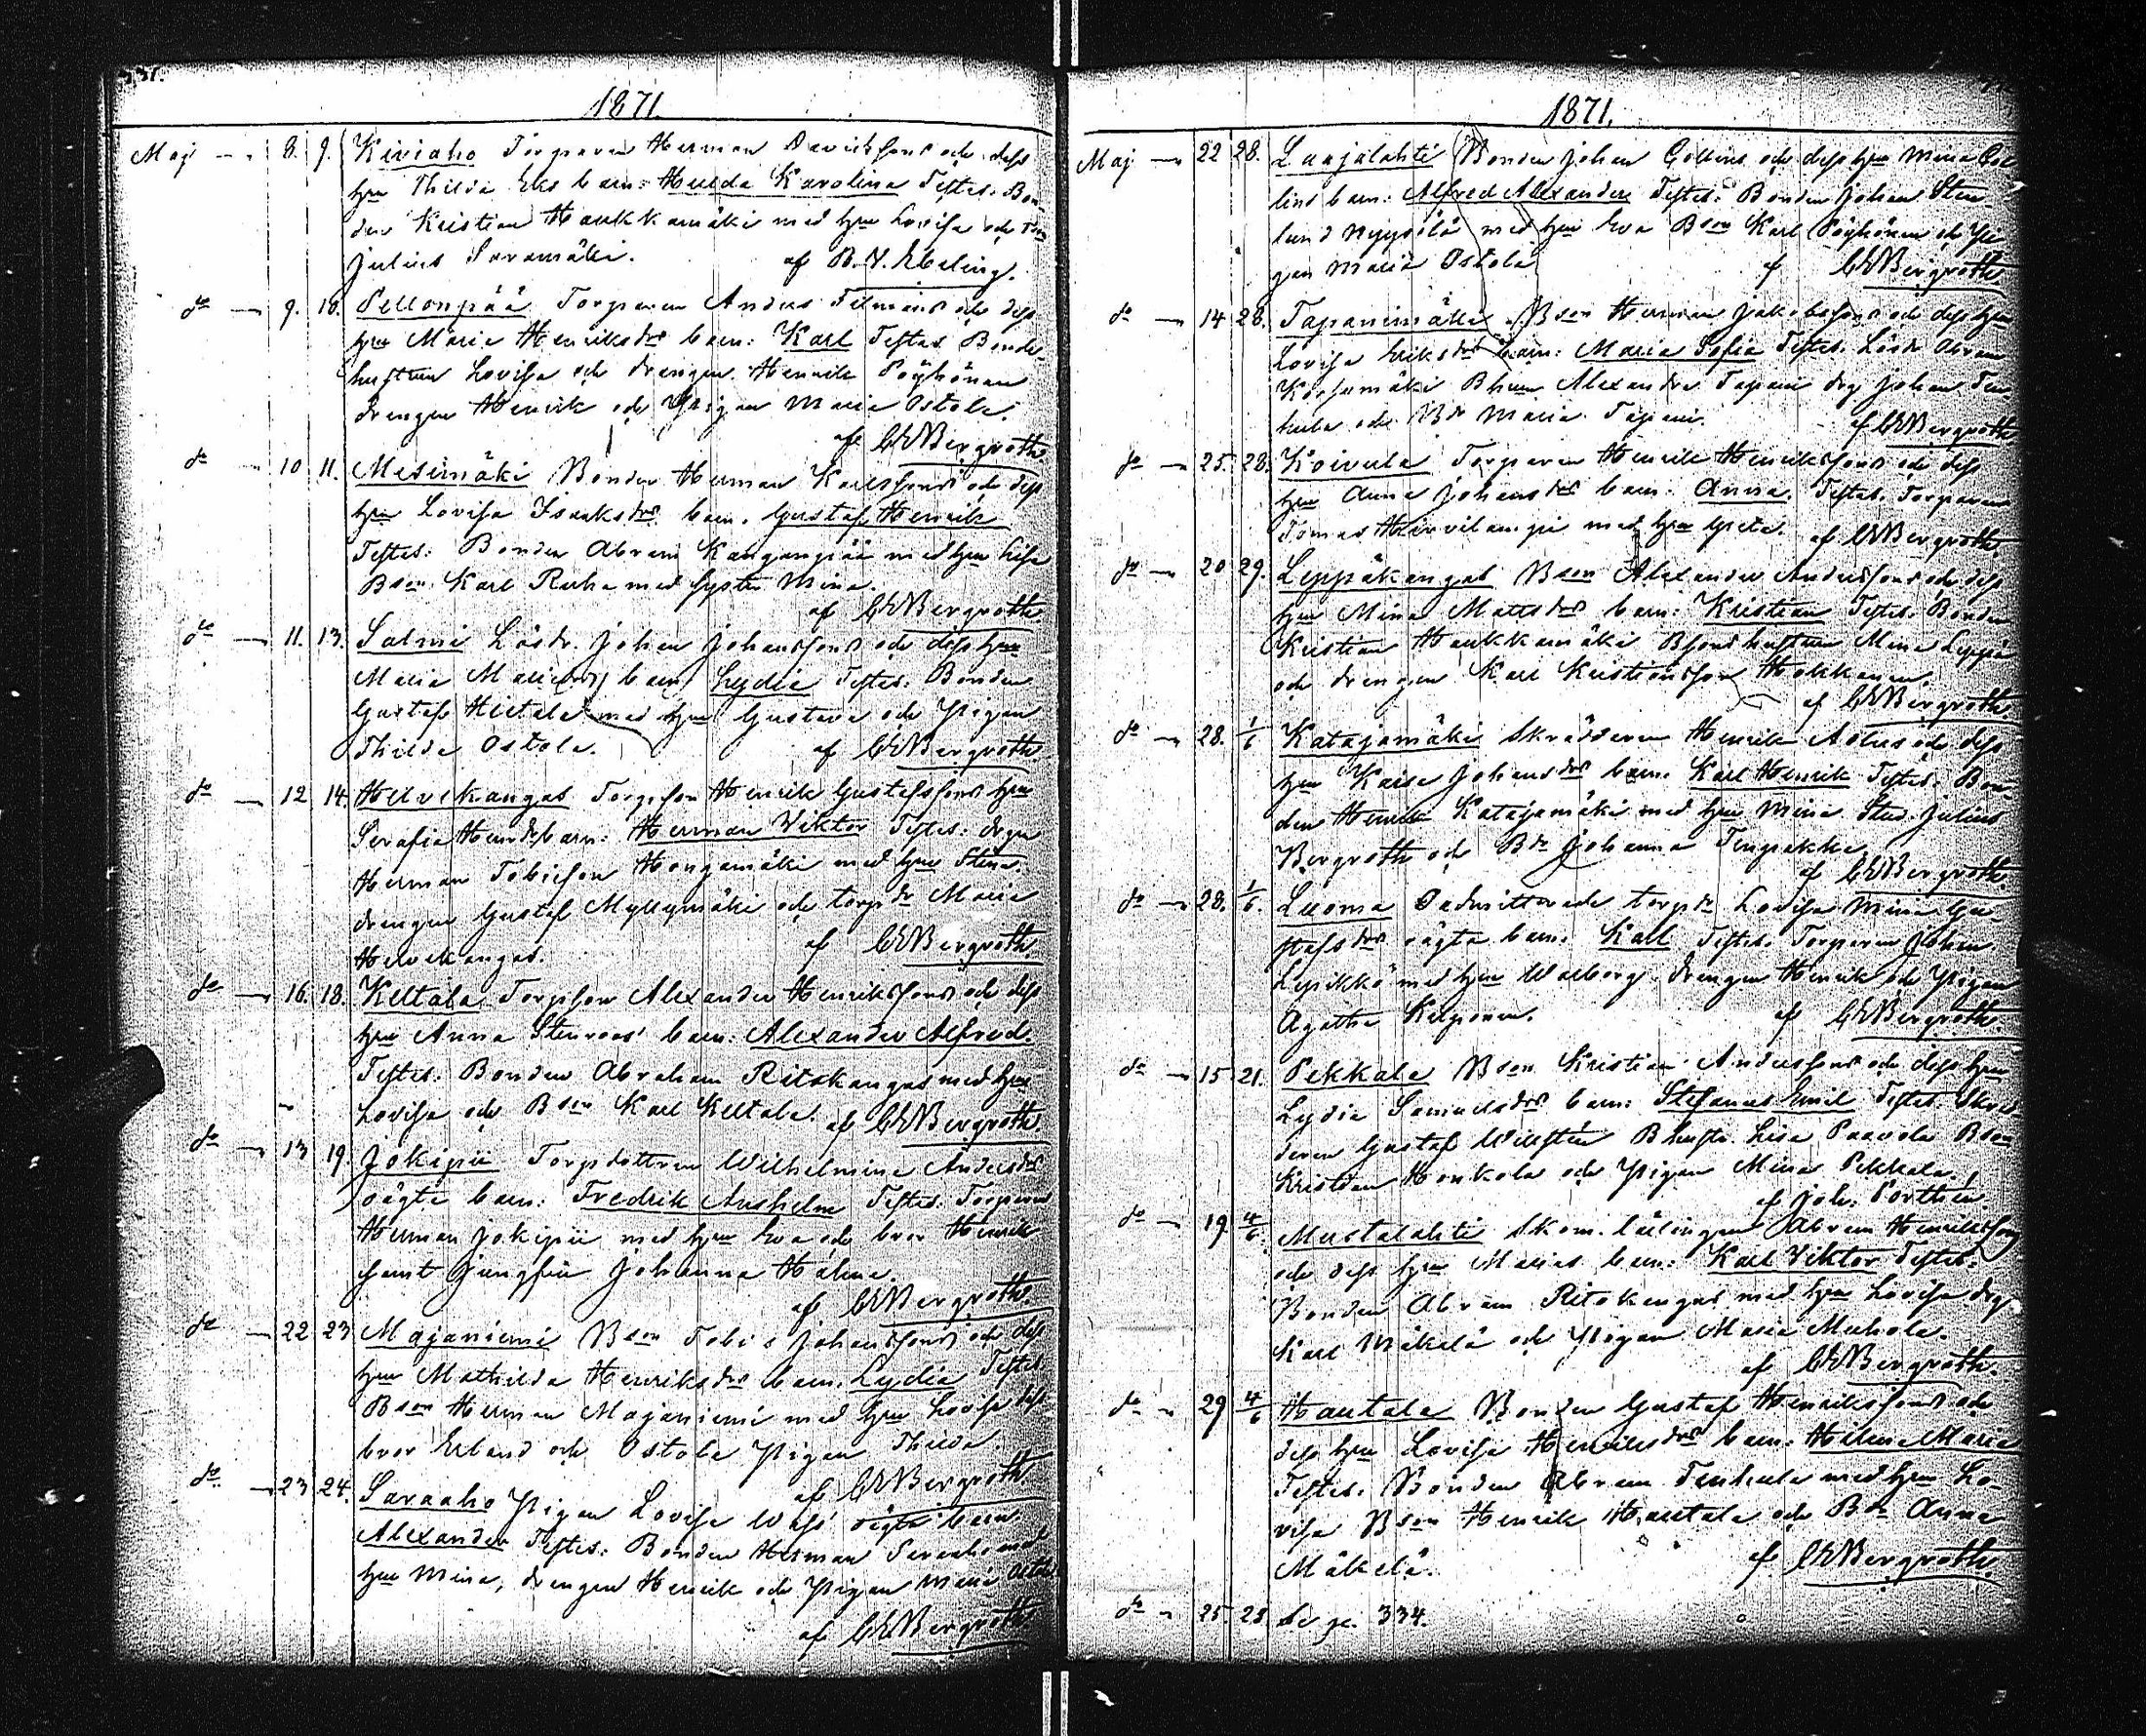 331.
1871.
Maj — 8. 9. Kiviaho Torparen Herman Davidssons och dess
hru Thilda Eks barn: Hulda Karolina Testes: Bon-
den Kristian Haukkamäki med hru Lovisa och
Julius Saramäki. af R. V. Ebeling.
do — 9. 18. Pellonpää Torparen Anders Filmans och dess
hru Maria Henriksdrs barn: Karl Testes Bonde-
hustrun Lovisa och drengen Henrik Pöyhönen
drengen Henrik och Pigan Maria Ostola.
af CEBergroth
do — 10 11. Mesimäki Bonden Herman Karlssons och dess
hru Lovisa Isaksdrs barn. Gustaf Henrik
Testes: Bonden Abram Kangaspää med hru Lisa
Bson Karl Ruha med syster Mina.
af CEBergroth
do — 11. 13. Salmi Lösdr. Johan Johanssons och dess hru
Maria barn Lydia Testes: Bonden
Gustaf Hietala med hru Gustava och Pigan
Thilda Ostola. af CEBergroth
do — 12 14. Hervikangas Torpson Henrik Gustafssons hru
Serafia Henrdrs barn: Herman Viktor Testes: drgn
Herman Tobiesson Hongamäki med hru Stina.
drengen Gustaf Myllymäki och torpdr Maria
Hervikangas. af CEBergroth.
do — 16. 18. Keltala Torpson Alexander Henrikssons och dess
hru Anna Stenroos' barn: Alexander Alfred.
Testes: Bonden Abraham Ritokangas med hru
Lovisa och Bson Karl Keltala. af CEBergroth
do — 13 19 Jokipii Torpdottren Wilhelmina Andersdrs
oägta barn: Fredrik Anshelm Testes: Torparen
Herman Jokipii med hru Eva och bror Henrik
samt jungfru Johanna Halme.
af CEBergroth
do — 22 23 Majaniemi Bson Tobias Johanssons och dess
hru Mathilda Henriksdrs barn. Lydia Testes
Bson Herman Majaniemi med hru Lovisa dess
bror Erland och Ostola Pigan Thilda.
af CEBergroth
do — 23 24. Saraaho Pigan Lovisa Wass' oägta barn
Alexander Testes: Bonden Herman Saraaho med
hru Mina, drengen Henrik och Pigan Maria
af CEBergroth.
1871.
Maj — 22 28. Laajalahti Bonden Johan Collins och dess hru Mina Col-
lins barn: Alfred Alexander Testes: Bonden Johan Sten-
lund Nyysölä med hru Eva Bson Karl Pöyhönen och Pi-
gan Maria Ostola af CEBergroth
do — 14 28. Tapanimäki Bson Herman Jakobssons och dess hru
Lovisa Eriksdrs barn: Maria Sofia Testes: Lösdr Abram
Korpimäki Bhrun Alexandra Tapani drg Johan Ten-
hula och Bdr Maria Tapani. af CEBergroth
do — 25. 28. Koivula Torparen Henrik Henrikssons och dess
hru Anna Johansdrs barn: Anna. Testes. Torparen
Tomas Hirvilampi med hru Greta. af CEBergroth
do — 20 29. Leppäkangas Bson Alexander Anderssons och dess
hru Mina Mattsdrs barn: Kristian Testes: Bonden
Kristian Haukkamäki Bsons hustrun Mina Leppä
och drengen Karl Kristiansson Hokkanen.
af CEBergroth.
do — 28. 1/6 Katajamäki Skräddaren Henrik och dess
hru Kaisa Johansdrs barn. Karl Henrik Testes: Bon-
den Henrik Katajamäki med hru Mina Stud. Julius
Bergroth och Bdr Johanna Tengpakka.
af CEBergroth.
do — 28. 1/6. Luoma torpdr Lovisa Mina Gu-
stafsdrs oägta barn: Karl Testes: Torparen Johan
Lepikkö med hru Walborg. drengen Henrik och Pigan
Agatha Kalponen. af CEBergroth.
do — 15 21. Pekkala Bson Kristian Anderssons och dess hru
Lydia Samuelsdrs barn: Stefanus Emil Testes: Skräd-
daren Gustaf Bhustr. Lisa Paavola Bson
Kristian Honkola och Pigan Mina Pekkala.
af Joh: Porthén.
do — 19. 4/6. Mustalahti Skom. lärlingen Abram Henriksson
och dess hru Marias barn: Karl Viktor Testes.
Bonden Abram Ritokangas med hru Lovisa drg
Karl Mäkelä och Pigan Maria Muhola.
af CEBergroth.
do — 29 4/6 Hautala Bonden Gustaf Henrikssons och
dess hru Lovisa Henriksdrs barn: Hilma Maria
Testes: Bonden Abram Tenhula med hru Lo-
visa Bson Henrik Hautala och Bdr Anna
Mäkelä. af CEBergroth.
do — 25. 28. se pg. 334.